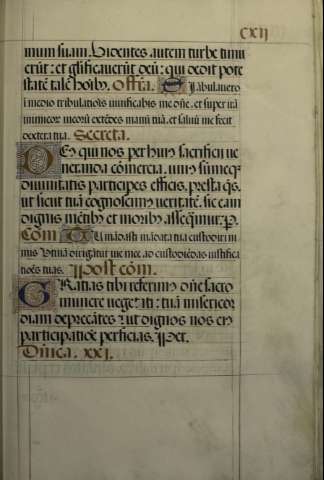 CXII
mum suam. Videntes autem turbe timu
erūt: et glificaverūt deū: qui dedit pote
statē talē hoībꝫ. Offra. Si ābulavero
ī medio tribulatiōīs vivificabis me dñe. et super irā
inimicor meorū extēdes manū tuā. et salvū me fecit
dextera tua. Secreta.
Deus qui nos per huius sacrificii ve
neranda cōmercia. unius sūmeqꝫ
divinitatis participes efficis. presta q̄s.
ut sicut tuā cognoscimus veritatē. sic eam
dignis mētibꝫ et moribꝫ assequamur. P.
Cōm. Tu mādasti mādata tua custodiri ni
mis Utinā dirigātur vie mee ad custodiēdas iustifica
tiōes tuas. Post cōm.
Gratias tibi referimus dñe sacro
munere vegetati: tuā misericor
diam deprecātes: ut dignos nos eiꝰ
participatiōe perficias. Per.
Dñica. xxi.